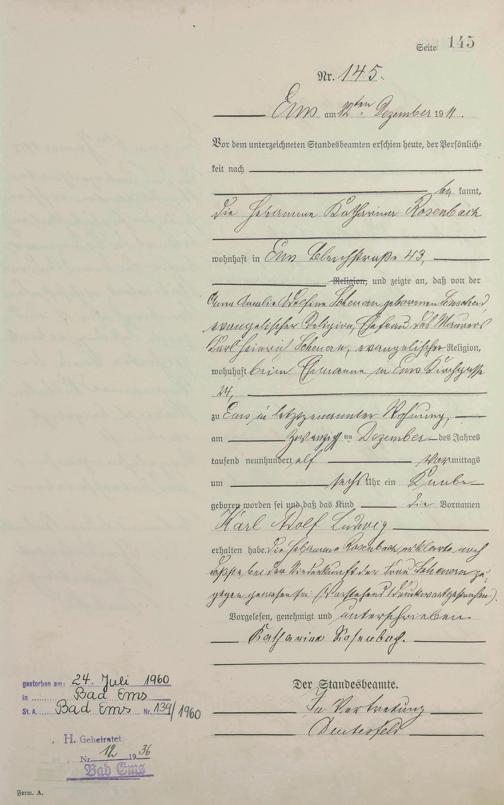 Seite 145
Nr. 145.
Ems am 12ten Dezember 1911.
Vor dem unterzeichneten Standesbeamten erschien heute, der Persönlich-
keit nach
be kannt,
die Hebamme Katharina Rosenbach
wohnhaft in Ems Bleichstraße 43,
Religion, und zeigte an, daß von der
Anna Amalie Adolfine Scheuern geborenen
evangelischer Religion, Ehefrau des Maurers
Karl Heinrich Scheuern, evangelischer Religion,
wohnhaft beim Ehemanne in Ems Kirchgasse
24,
zu Ems in letztgenannter Wohnung,
am ten Dezember des Jahres
tausend neunhundert elf Vormittags
um sechs Uhr ein Knabe
geboren worden sei und daß das Kind die Vornamen
Karl Adolf Ludwig
erhalten habe. Die Hebamme Rosenbach erklärte noch
daß sie bei der Niederkunft der Frau Scheuern zu-
gegen gewesen sei. (Vorstehend 1 Druckwort gestrichen).
Vorgelesen, genehmigt und unterschrieben
Katharina Rosenbach.
Der Standesbeamte.
In Vertretung
gestorben am: 24. Juli 1960
in Bad Ems
St. A. Bad Ems Nr. 139/1960
H. Geheiratet
Nr. 12 1936
Bad Ems
Form. A.